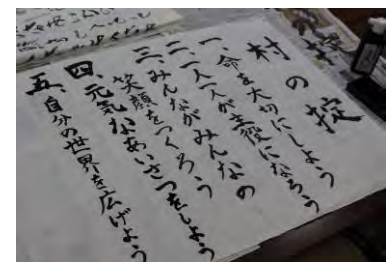 村の掟
一、命を大切にしよう
二、一人一人が主役になろう
三、みんながみんなの
笑顔をつくろう
四、元気なあいさつをしよう
五、自分の世界を広げよう